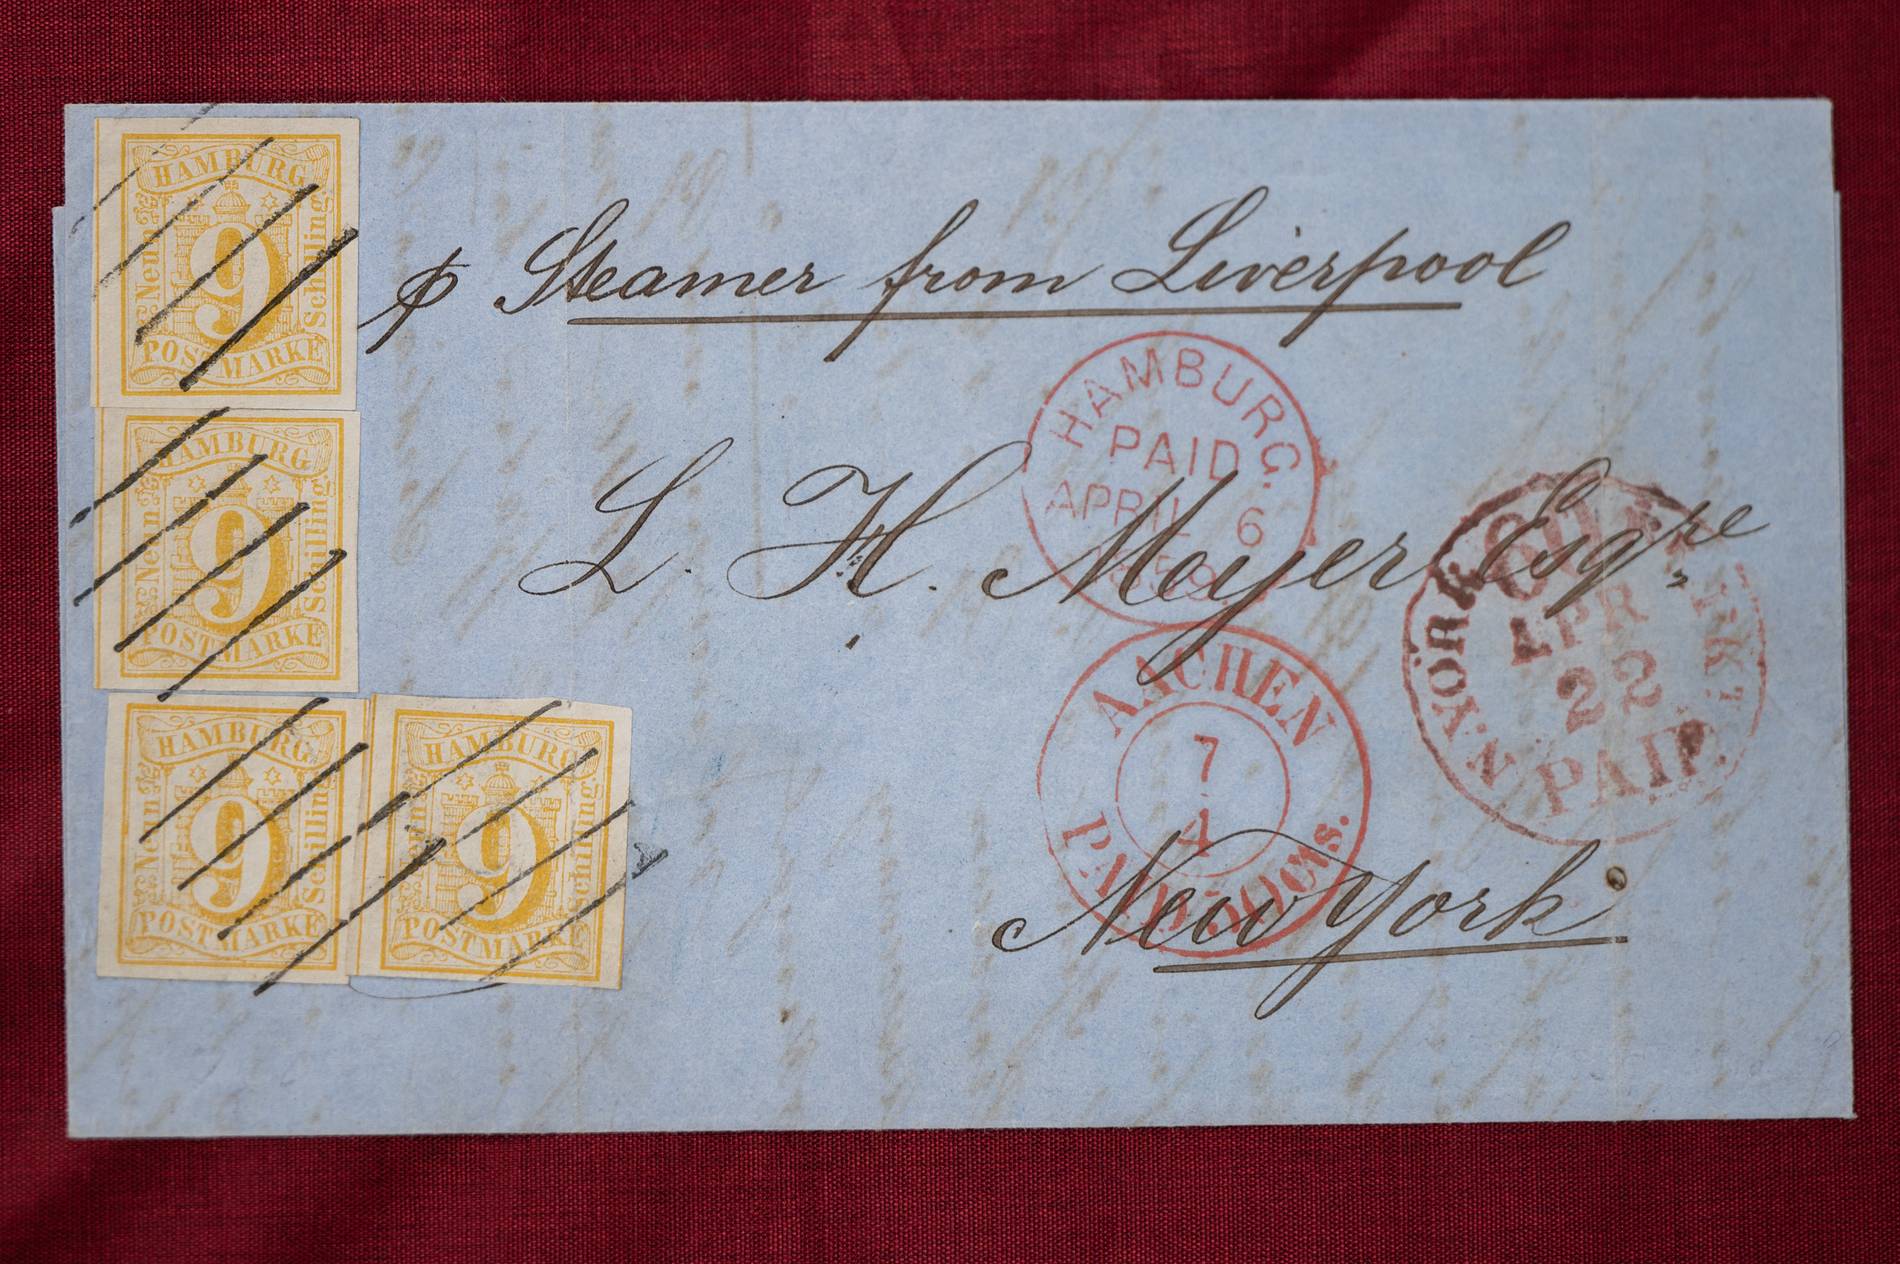 HAMBURG
Neun
9
Schilling.
POSTMARKE
HAMBURG
Neun
9
Schilling.
POSTMARKE
HAMBURG
Neun
9
Schilling
POSTMARKE
HAMBURG
Neun
9
Schilling
POSTMARKE
p Steamer from Liverpool
HAMBURG.
PAID
APRIL 6
L. H. Meyer Esqre
N. YORK
APR
22
PAID
PKT
AACHEN
7
4
PAID 30 Cts.
New York